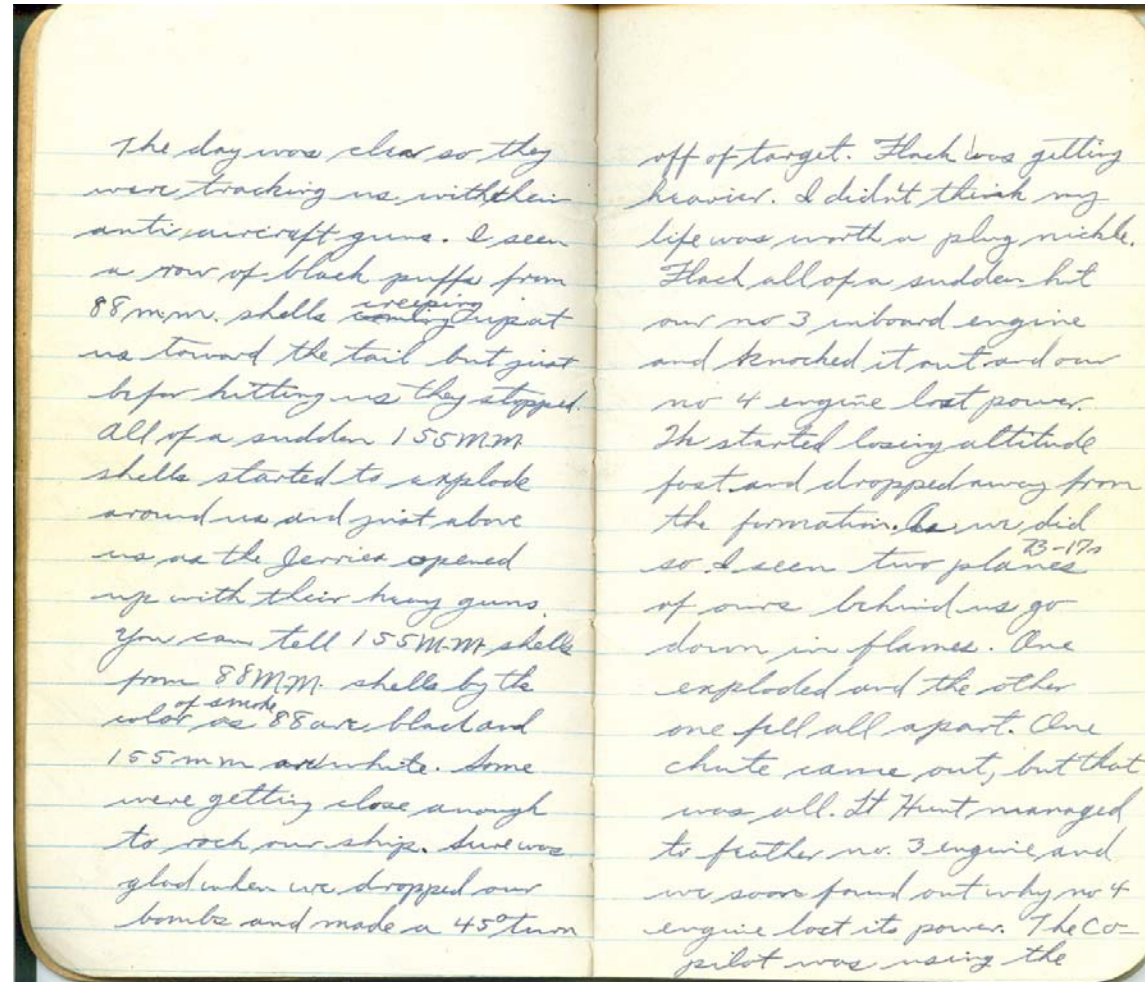 The day was clear so they
were tracking us with their
anti aircraft guns. I seen
a row of black puffs from
88 m.m. shells creeping up at
us toward the tail but just
befor hitting us they stopped.
All of a sudden 155MM
shells started to explode
around us and just above
us as the Jerries opened
up with their heavy guns.
You can tell 155M.M. shells
from 88M.M. shells by the
color of smoke as 88 are black and
155mm are white. Some
were getting close anough
to rock our ship. Sure was
glad when we dropped our
bombs and made a 45° turn
off of target. Flack was getting
heavier. I didn't think my
life was worth a plug nickle.
Flack all of a sudden hit
our no 3 inboard engine
and knocked it out and our
no 4 engine lost power.
We started losing altitude
fast and dropped away from
the formation. As we did
so I seen two planes B-17s
of ours behind us go
down in flames. One
exploded and the other
one fell all apart. One
chute came out, but that
was all. Lt Hunt managed
to feather no. 3 engine and
we soon found out why no 4
engine lost its power. The Co-
pilot was using the